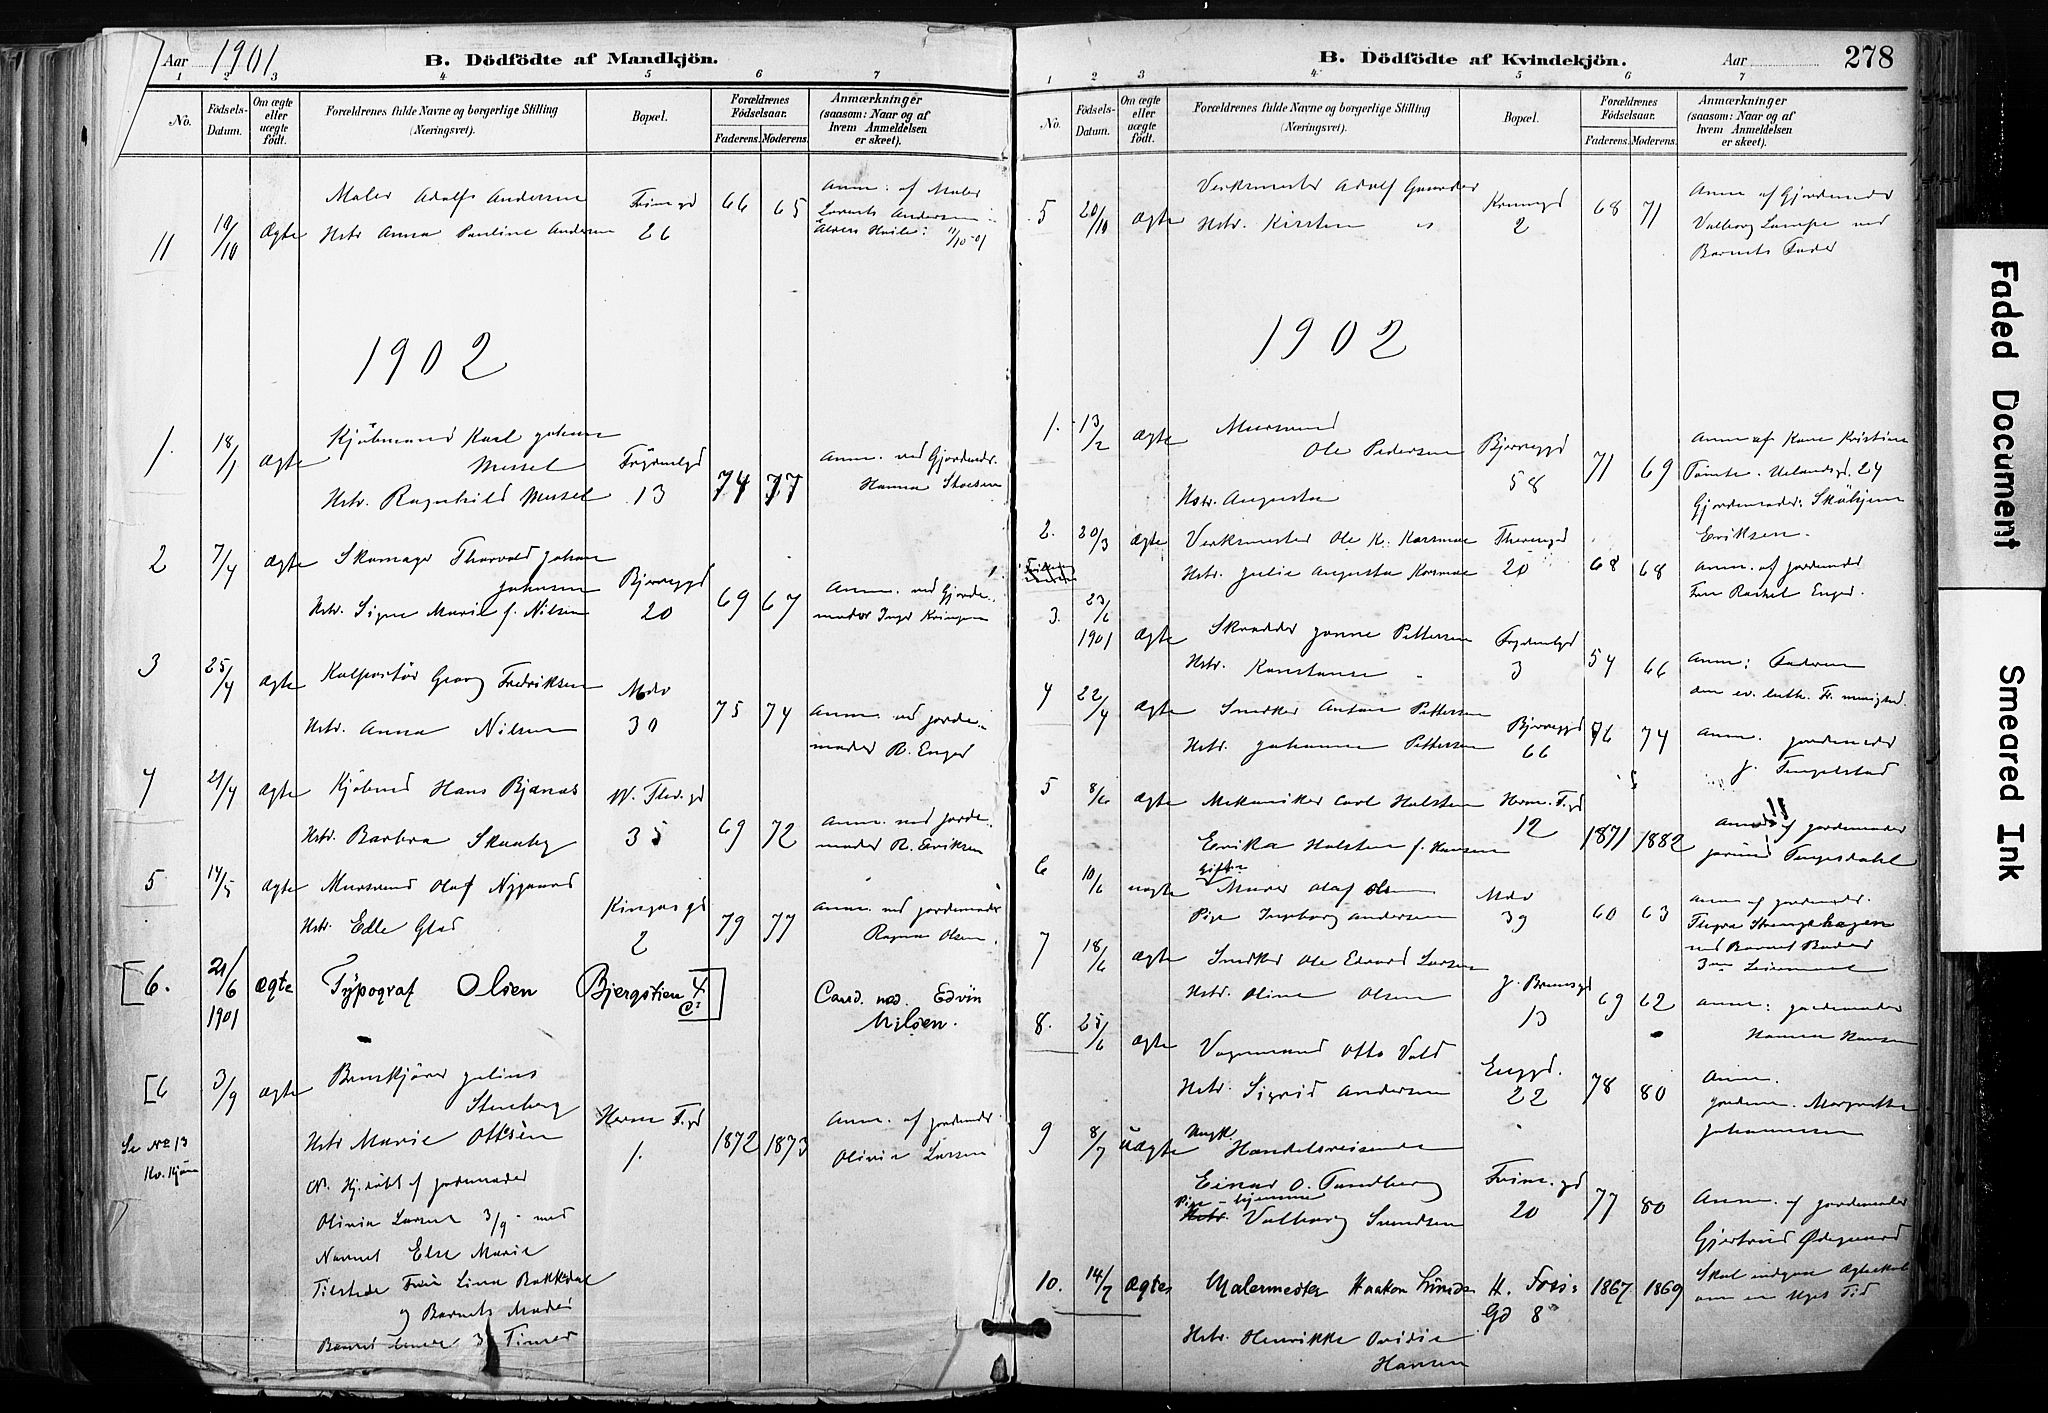 Aar 1901
B. Dödfödte af Mandkjön.
1 2 3 4 5 6 7
No.
Födsels-Datum.
Om ægte eller uægte födt.
Forældrenes fulde Navne og borgerlige Stilling (Næringsvei).
Bopæl.
Forældrenes Födselsaar.
Faderens. Moderens.
Anmærkninger (saasom: Naar og af hvem Anmeldelsen er skeet).
11 19/10 Ægte Maler Adolf Andersen
Hstr Anna Pauline Andersen
26
66 65
Anm: af Maler
Andersen
1902
1. 18/1 Ægte Kjöbmand Karl Johan
Messel
Hstr. Ragnhild Messel
13
74 77
Anm. ved Gjordmdr.
Hanna
2 7/4 Ægte Skomager Thorvald Johan
Johansen
Hstr. Signe Marie f. Nilsen
Bjerregd
20
69 67
Anm. ved Gjorde-
moder Inga
3 25/4 Ægte Kolportör Georg Fredriksen
Hstr. Anna Nilsen
Mdv
30
75 74
Anm. ved Jorde-
moder R. Enger
4 21/4 Ægte Kjöbmd Hans Bjanæs
Hstr. Barbra
35
69 72
Anm. ved Jorde-
moder R. Eriksen
5 14/5 Ægte Murmand Olaf Nygaard
Hstr. Edle
Kingosgd
2
79 77
Anm. ved Jordemoder
Ragna Olsen.
[6. 21/6 1901 Ægte Typograf Olsen Bjergstien 4
Cand. med. Edvin
Nilsen.
[6 3/9 Ægte Julius
Stenberg
Hstr Marie Ottesen
Herm. F.gd
1.
1872 1873
Anm. af Jordemdr
Olivia Larsen
Se No 13
Kv.kjön
N. Hj.döbt af Jordemoder
Olivia Larsen 3/9 - med
Navnet Else Marie
Tilstede Frøk Lina Bakkedal
og Barnets Moder
Barnet levede 3 Timer
B. Dödfödte af Kvindekjön.
Aar
278
1 2 3 4 5 6 7
No.
Födsels-Datum.
Om ægte eller uægte födt.
Forældrenes fulde Navne og borgerlige Stilling (Næringsvei).
Bopæl.
Forældrenes Födselsaar.
Faderens. Moderens.
Anmærkninger (saasom: Naar og af hvem Anmeldelsen er skeet).
5 20/10 Ægte Verksmester Adolf
Hstr. Kirsten
2
68 71
Anm af Gjordemoder
Valborg Lampe ved
Barnets Fader
1902
1. 13/2 Ægte Murmand
Ole Pedersen
Hstr. Augusta
Bjerregd
58
71 69
Anm af Kone Kristine
Tomte. Uelandsgd. 24
Gjordemoder:
Eriksen.
2. 20/3 Ægte Verksmester Ole K. Korsmoe
Hstr. Julie Augusta Korsmoe
20
68 68
Anm. af Jordemdr
Fru Rachel Enger.
3. 23/6 1901 Ægte Skrædder Pettersen
Hstr. Konstanse
3
54 66
Anm: Faderen
den ev. luth. Fr. menighed.
4 22/4 Ægte Snedker Anton Pettersen
Hstr. Johanne Pettersen
Bjerregd
66
76 74
Anm. Jordemoder
J. Tingelstad
5 8/6 Ægte Mekaniker Carl Halsten
Erika Halsten f. Hansen
Herm. F.gd
12
1871 1882
Anm af Jordemoder
6 10/6 uægte Gift Murer Olaf Olsen
Pige Ingeborg Andersen
Mdv
39
60 63
Anm af Jordemdr.
ved Barnets Fader
3die Leiermaal
7 18/6 Ægte Snedker Ole Edvard Larsen
Hstr. Oline Olsen
J. Brunsgd
13
69 62
Anm: Jordemoder
Hanna Hansen
8. 25/6 Ægte Vognmand Otto Vold
Hstr. Sigrid Andersen
Enggd.
22
78 80
Anm.
Jordem. Margrethe
Johannessen
9 8/7 Uægte Ungk. Handelsreisende
Einar O. Sundberg
Pige - hjemme
Valborg Svendsen
20
77 80
Anm. af Jordemoder
Gjertrud Ødegaard
Skal indgaa Ægteskab
om en Uges Tid
10. 14/7 Ægte Malermester Haakon
Hstr. Henrikke Ovidia
Hansen
H.
Gd 8
1867 1869
Faded Document
Smeared Ink